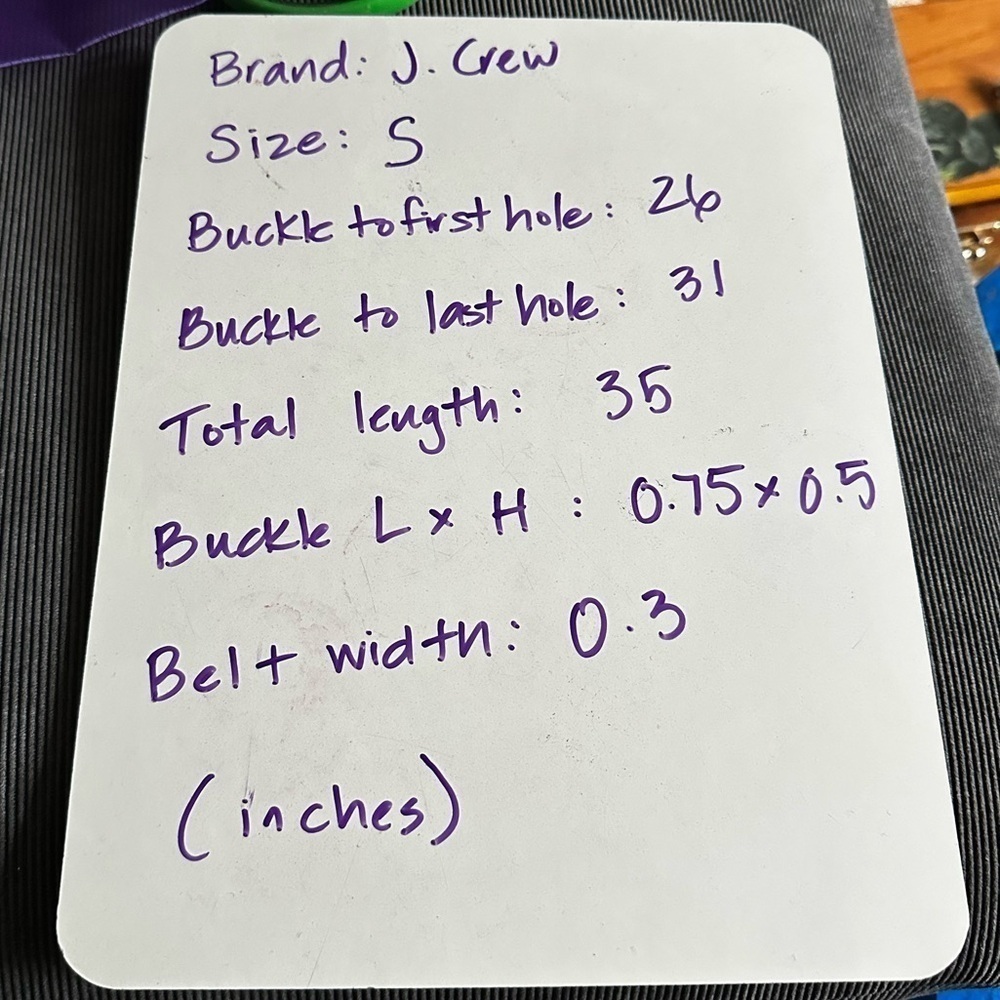 Brand: J. Crew
Size: S
Buckle to first hole: 26
Buckle to last hole: 31
Total length: 35
Buckle L x H : 0.75 x 0.5
Belt width: 0.3
(inches)